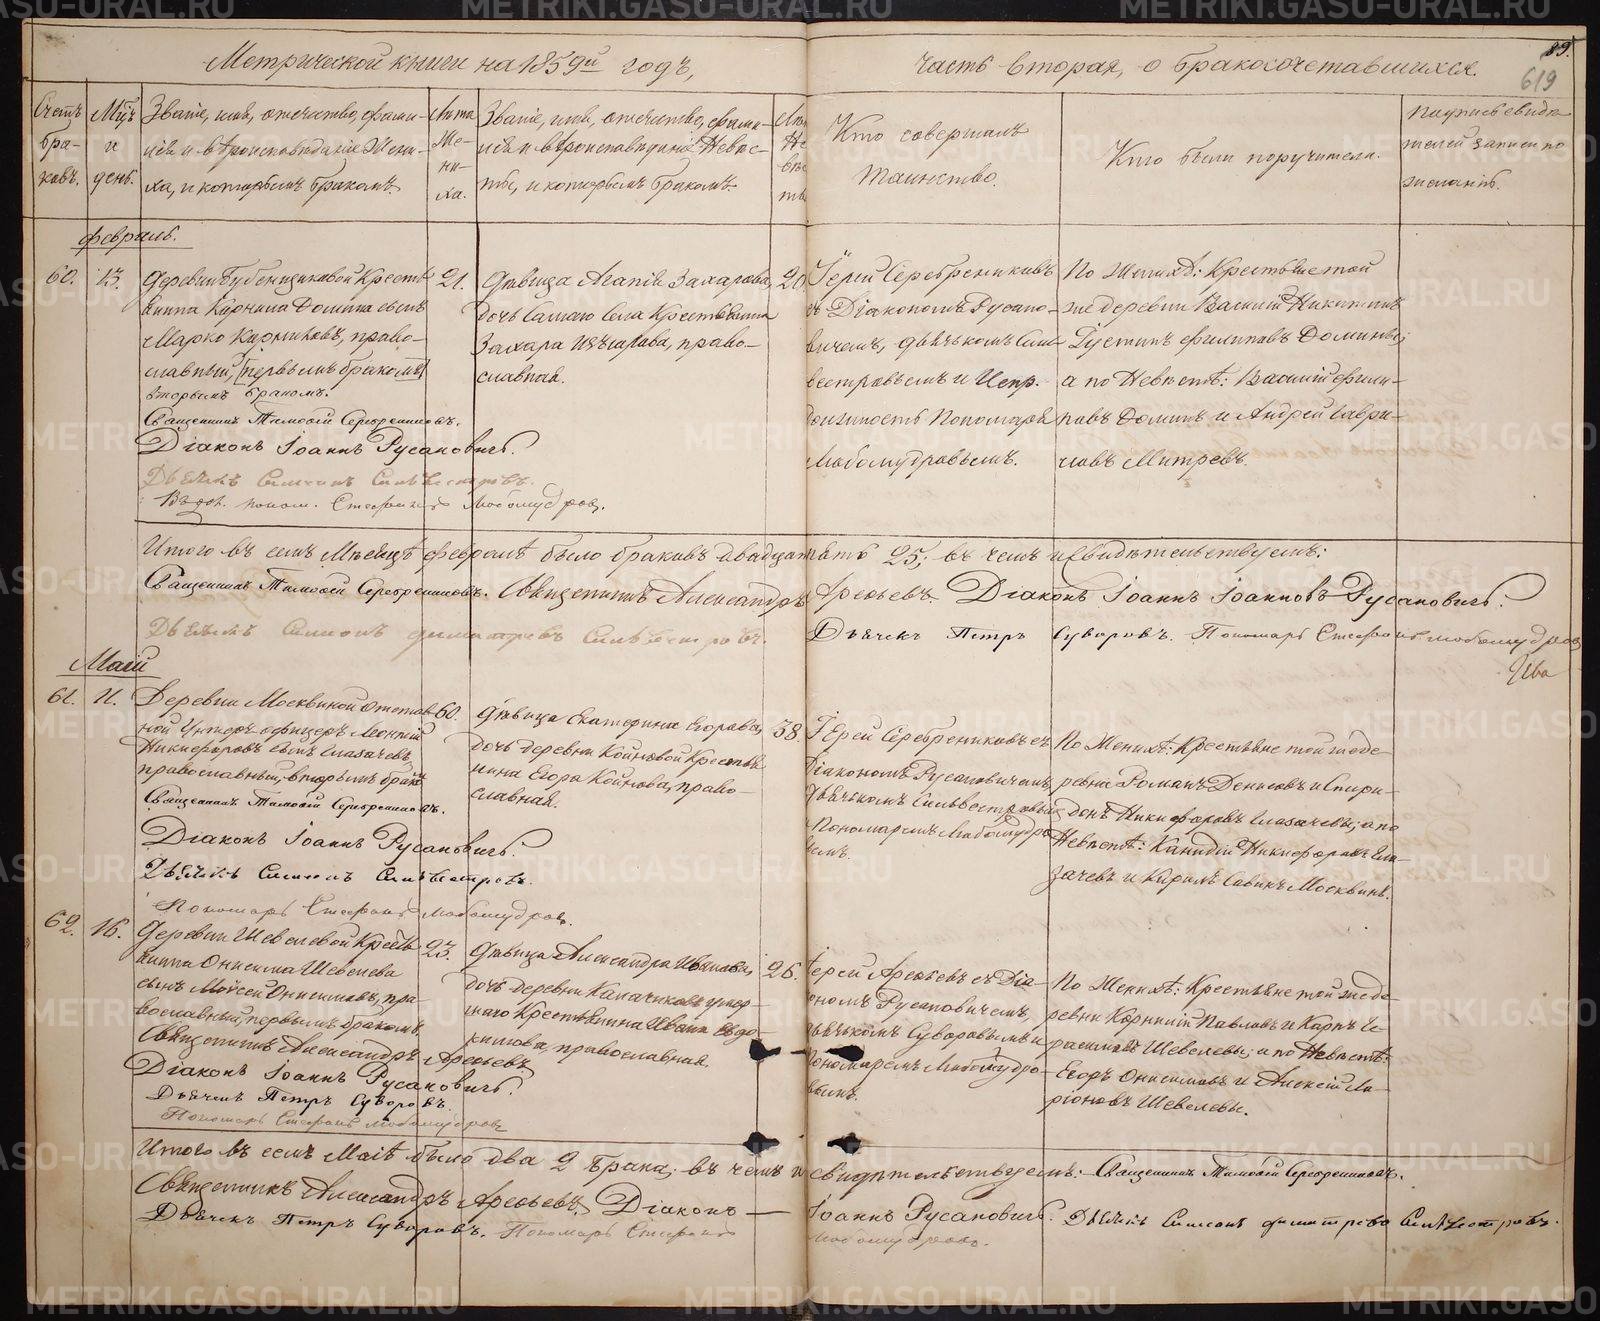 Метрической книги на 1859й годъ,
часть вторая, о бракосочетавшихся.
89.
619
Счетъ бра- ковъ.
Мцъ и день.
Званіе, имя, отечество, фами-
лія и вѣроисповѣданіе Жени-
ха, и которымъ бракомъ.
Лѣта Же- ни- ха.
Званіе, имя, отечество, фами-
лія и вѣроисповѣданіе Невѣс-
ты, и которымъ бракомъ.
Лѣт Не вѣс ты
Кто совершалъ
Таинство.
Кто были поручители.
Подпись свидѣ-
телей записи по
желанію.
Февраль.
60.
13.
Деревни Бубенщиковой Кресть-
янина Карнила Домина сынъ
Марко Карниловъ, право-
славный, [первымъ бракомъ]
вторымъ бракомъ.
Священникъ Тимофей Серебренниковъ.
Діаконъ Іоаннъ Русановичъ.
Дьячекъ Симеонъ Сильвестровъ.
поном. Стефанъ Любомудровъ.
21.
Дѣвица Агапія Захарова,
дочь Села Крестьянина
Захара, право-
славная.
20
Іерей Серебрениковъ
съ Діакономъ Русано-
вичемъ, дьячкомъ Силь-
вестровымъ и Испр.
должность Пономаря
Любомудровымъ.
По Женихѣ: Крестьяне той
же деревни Василій Никитинъ
Іустинъ Филиповъ Домины;
а по Невѣстѣ: Василій Фили-
повъ Доминъ и Андрей Гаври-
ловъ Митревъ.
Итого въ семъ Мѣсяцѣ Февралѣ было браковъ двадцать пять 25, въ чемъ и свидѣтельствуемъ:
Священникъ Тимофей Серебренниковъ. Священникъ Александръ Арефьевъ. Діаконъ Іоаннъ Іоанновъ Русановичъ.
Дьячекъ Симеонъ Димитріевъ Сильвестровъ. Дьячекъ Петръ Суворовъ. Пономарь Стефанъ Любомудровъ
Маій
61.
11.
Деревни Москвиной отстав-
ной Унтеръ офицеръ Леонтій
Никифоровъ сынъ Глазачевъ,
православный, вторымъ бракомъ
Священникъ Тимофей Серебренниковъ.
Діаконъ Іоаннъ Русановичъ.
Дьячекъ Симеонъ Сильвестровъ.
Пономарь Стефанъ Любомудровъ.
60.
Дѣвица Екатерина Егорова,
дочь деревни Койновой Крестья-
нина Егора Койнова, право-
славная.
38.
Іерей Серебрениковъ съ
Діакономъ Русановичемъ,
дьячкомъ Сильвестровымъ
Пономаремъ Любомудро-
вымъ.
По Женихѣ: Крестьяне той же де-
ревни Романъ Денисовъ и Спири-
донъ Никифоровъ Глазачевы; а по
Невѣстѣ: Никифоровъ Гла-
зачевъ и Кирилъ Савинъ Москвинъ.
62.
16.
Деревни Шевелевой Кресть-
янина Онисима Шевелева
сынъ Моисей Онисимовъ, пра-
вославный, первымъ бракомъ.
Священникъ Александръ Арефьевъ.
Діаконъ Іоаннъ Русановичъ.
Дьячекъ Петръ Суворовъ.
Пономарь Стефанъ Любомудровъ
23.
Дѣвица Александра Иванова,
дочь деревни умер-
шаго Крестьянина Ивана Евдо-
кимова, православная.
26.
Іерей Арефьевъ съ Діа-
кономъ Русановичемъ,
дьячкомъ Суворовымъ и
Пономаремъ Любомудро-
вымъ.
По Женихѣ: Крестьяне той же де-
ревни Корнилій Павловъ и Карпъ Ге-
расимовъ Шевелевы; а по Невѣстѣ:
Егоръ Онисимовъ и Алексѣй Ла-
ріоновъ Шевелевы.
Итого въ семъ Маіѣ было два 2 брака; въ чемъ и свидѣтельствуемъ: Священникъ Тимофей Серебренниковъ.
Священникъ Александръ Арефьевъ. Діаконъ — Іоаннъ Русановичъ. Дьячекъ Симеонъ Димитріевъ Сильвестровъ.
Дьячекъ Петръ Суворовъ. Пономарь Стефанъ Любомудровъ.
METRIKI.GASO-URAL.RU